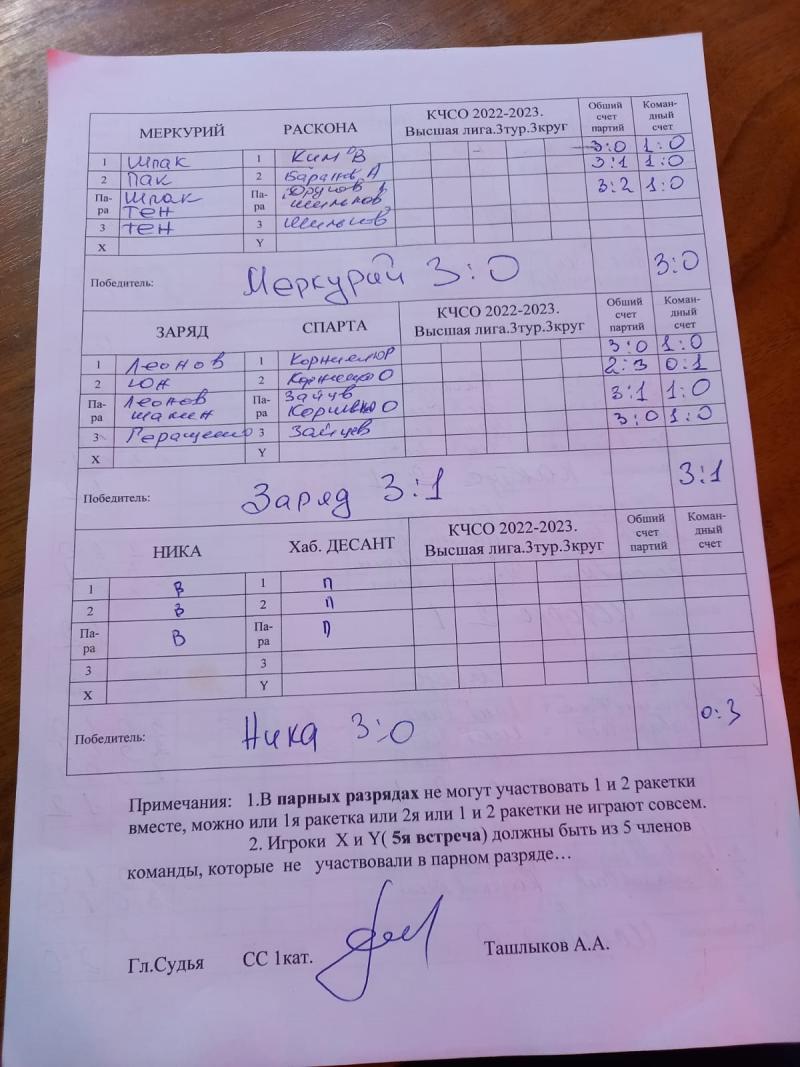 МЕРКУРИЙ РАСКОНА КЧСО 2022-2023. Высшая лига.3тур.3круг Общий счет партий Коман-дный счет
1 Шпак 1 Ким В 3:0 1:0
2 Пак 2 Баранов А 3:1 1:0
Па-ра Шпак Тен Па-ра 3:2 1:0
3 Тен 3
X Y
Победитель: Меркурий 3:0 3:0
ЗАРЯД СПАРТА КЧСО 2022-2023. Высшая лига.3тур.3круг Общий счет партий Коман-дный счет
1 Леонов 1 3:0 1:0
2 Юн 2 2:3 0:1
Па-ра Леонов Па-ра Зайцев 3:1 1:0
3 3 Зайцев 3:0 1:0
X Y
Победитель: Заряд 3:1 3:1
НИКА Хаб. ДЕСАНТ КЧСО 2022-2023. Высшая лига.3тур.3круг Общий счет партий Коман-дный счет
1 В 1 П
2 В 2 П
Па-ра В Па-ра П
3 3
X Y
Победитель: Ника 3:0 0:3
Примечания: 1.В парных разрядах не могут участвовать 1 и 2 ракетки
вместе, можно или 1я ракетка или 2я или 1 и 2 ракетки не играют совсем.
2. Игроки X и Y( 5я встреча) должны быть из 5 членов
команды, которые не участвовали в парном разряде…
Гл.Судья СС 1кат. Ташлыков А.А.